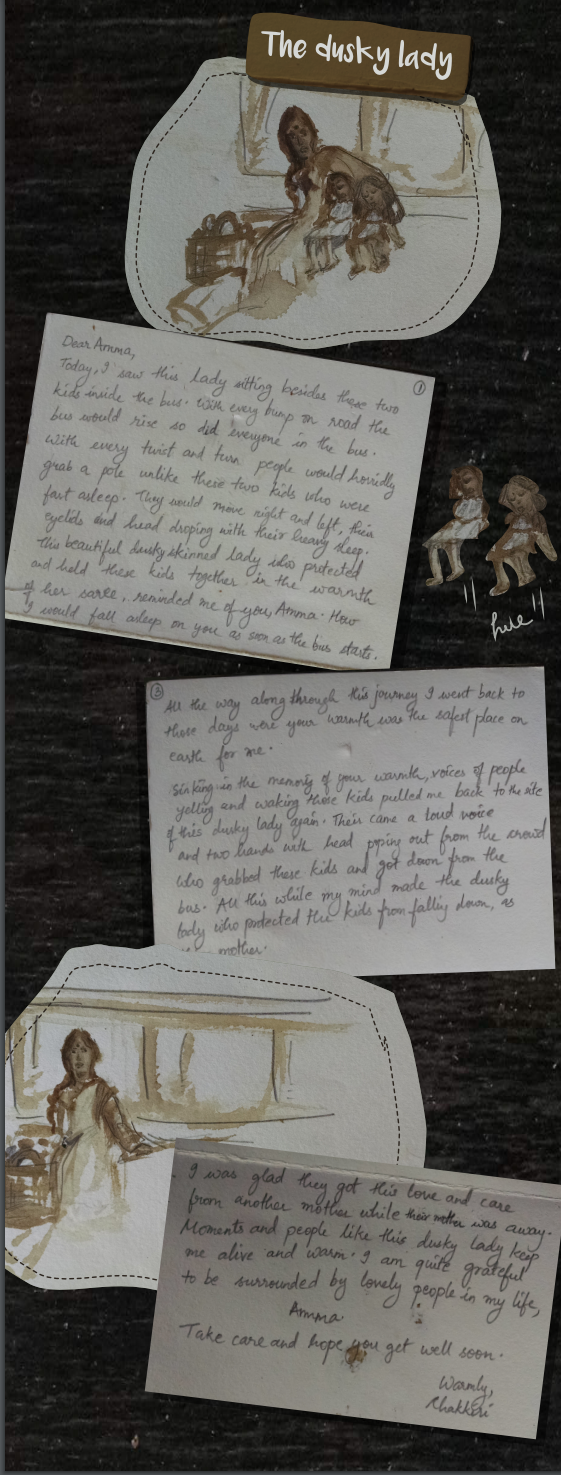 The dusky lady
①
Dear Amma,
Today, I saw this lady sitting besides these two
kids inside the bus. With every bump on road the
bus would rise so did everyone in the bus.
With every twist and turn people would horridly
grab a pole unlike these two kids who were
fast asleep. They would move right and left, their
eyelids and head droping with their heavy sleep.
This beautiful dusky skinned lady who protected
and held these kids together in the warmth
of her saree, reminded me of you, Amma. How
I would fall asleep on you as soon as the bus starts.
here
②
All the way along through this journey I went back to
those days were your warmth was the safest place on
earth for me.
Sinking in the memory of your warmth, voices of people
yelling and waking those kids pulled me back to the site
of this dusky lady again. Their came a loud voice
and two hands with head poping out from the crowd
who grabbed these kids and got down from the
bus. All this while my mind made the dusky
lady who protected the kids from falling down, as
mother.
I was glad they got this love and care
from another mother while their mother was away.
Moments and people like this dusky lady keep
me alive and warm. I am quite grateful
to be surrounded by lovely people in my life,
Amma.
Take care and hope you get well soon.
Warmly,